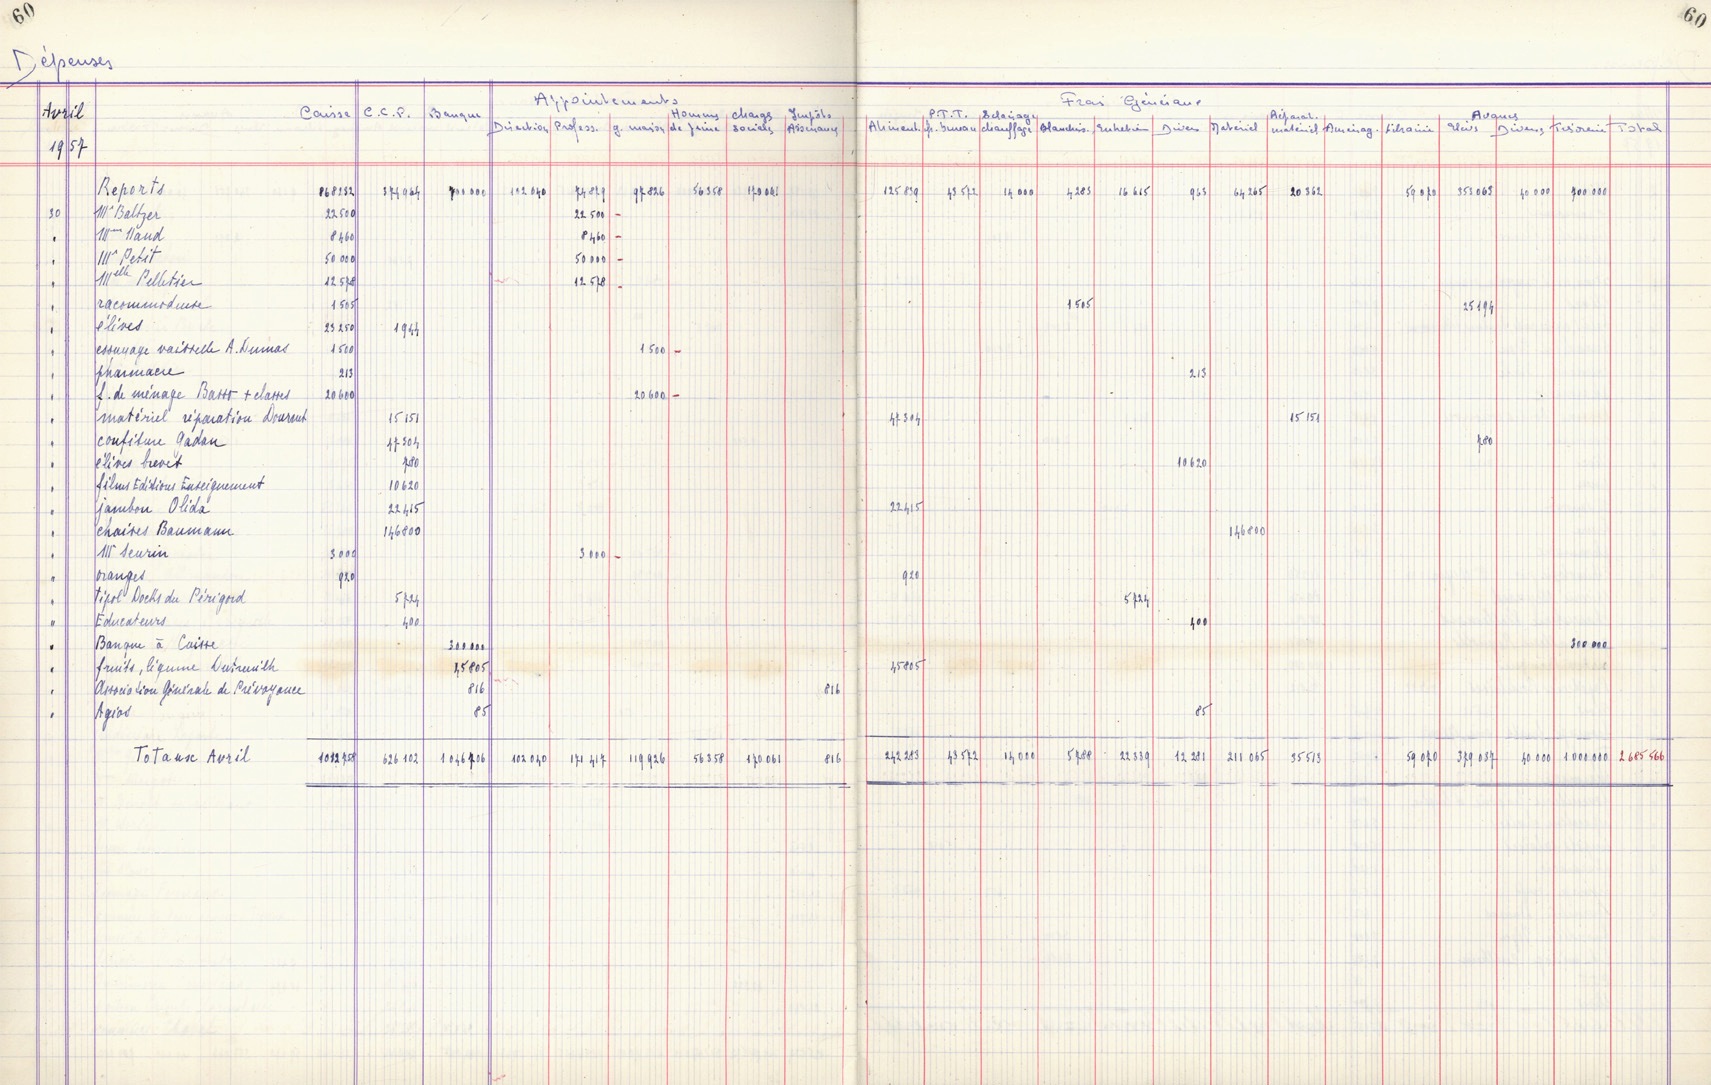 60
60
Dépenses
Avril 1957
Caisse C.C.P. Banque
Appointements
Direction Profess. g. maison Homms de peine charges sociales Impôts Assurances
Frais Généraux
Aliment. P.T.T. fr. bureau Eclairage chauffage Blanchis. Entretien Divers Matériel Réparat. matériel Aménag. Librairie Avances Elèves Divers Trésorerie Total
Reports 868232 374964 700000 102040 74879 97826 56358 170061 125839 43572 14000 4283 16615 963 64265 20362 59070 353063 40000 700000
30 Mr Baltzer 22500 22500 -
" Mme Naud 8460 8460 -
" Mr Petit 50000 50000 -
" Melle Pelletier 12578 12578 -
" racommodeuse 1505 1505 25194
" élèves 23250 1944
" essuyage vaisselle A. Dumas 1500 1500 -
" pharmacie 213 213
" f. de ménage Basst + classes 20600 20600 -
" matériel réparation Dourent 15151 47304 15151
" confiture Gadan 47304 780
" élèves brevet 780 10620
" films Editions Enseignement 10620
" jambon Olida 22415 22415
" chaises Baumann 146800 146800
" Mr Seurin 3000 3000 -
" oranges 920 920
" tipol Docks du Périgord 5724 5724
" Educateurs 400 400
" Banque à Caisse 300000 300000
" fruits, légume Dutreuilh 45805 45805
" Association Générale de Prévoyance 816 816
" Agios 85 85
Totaux Avril 1012758 626102 1046706 102040 171417 119926 56358 170061 816 242283 43572 14000 5788 22339 12281 211065 35513 59070 379037 40000 1000000 2685566